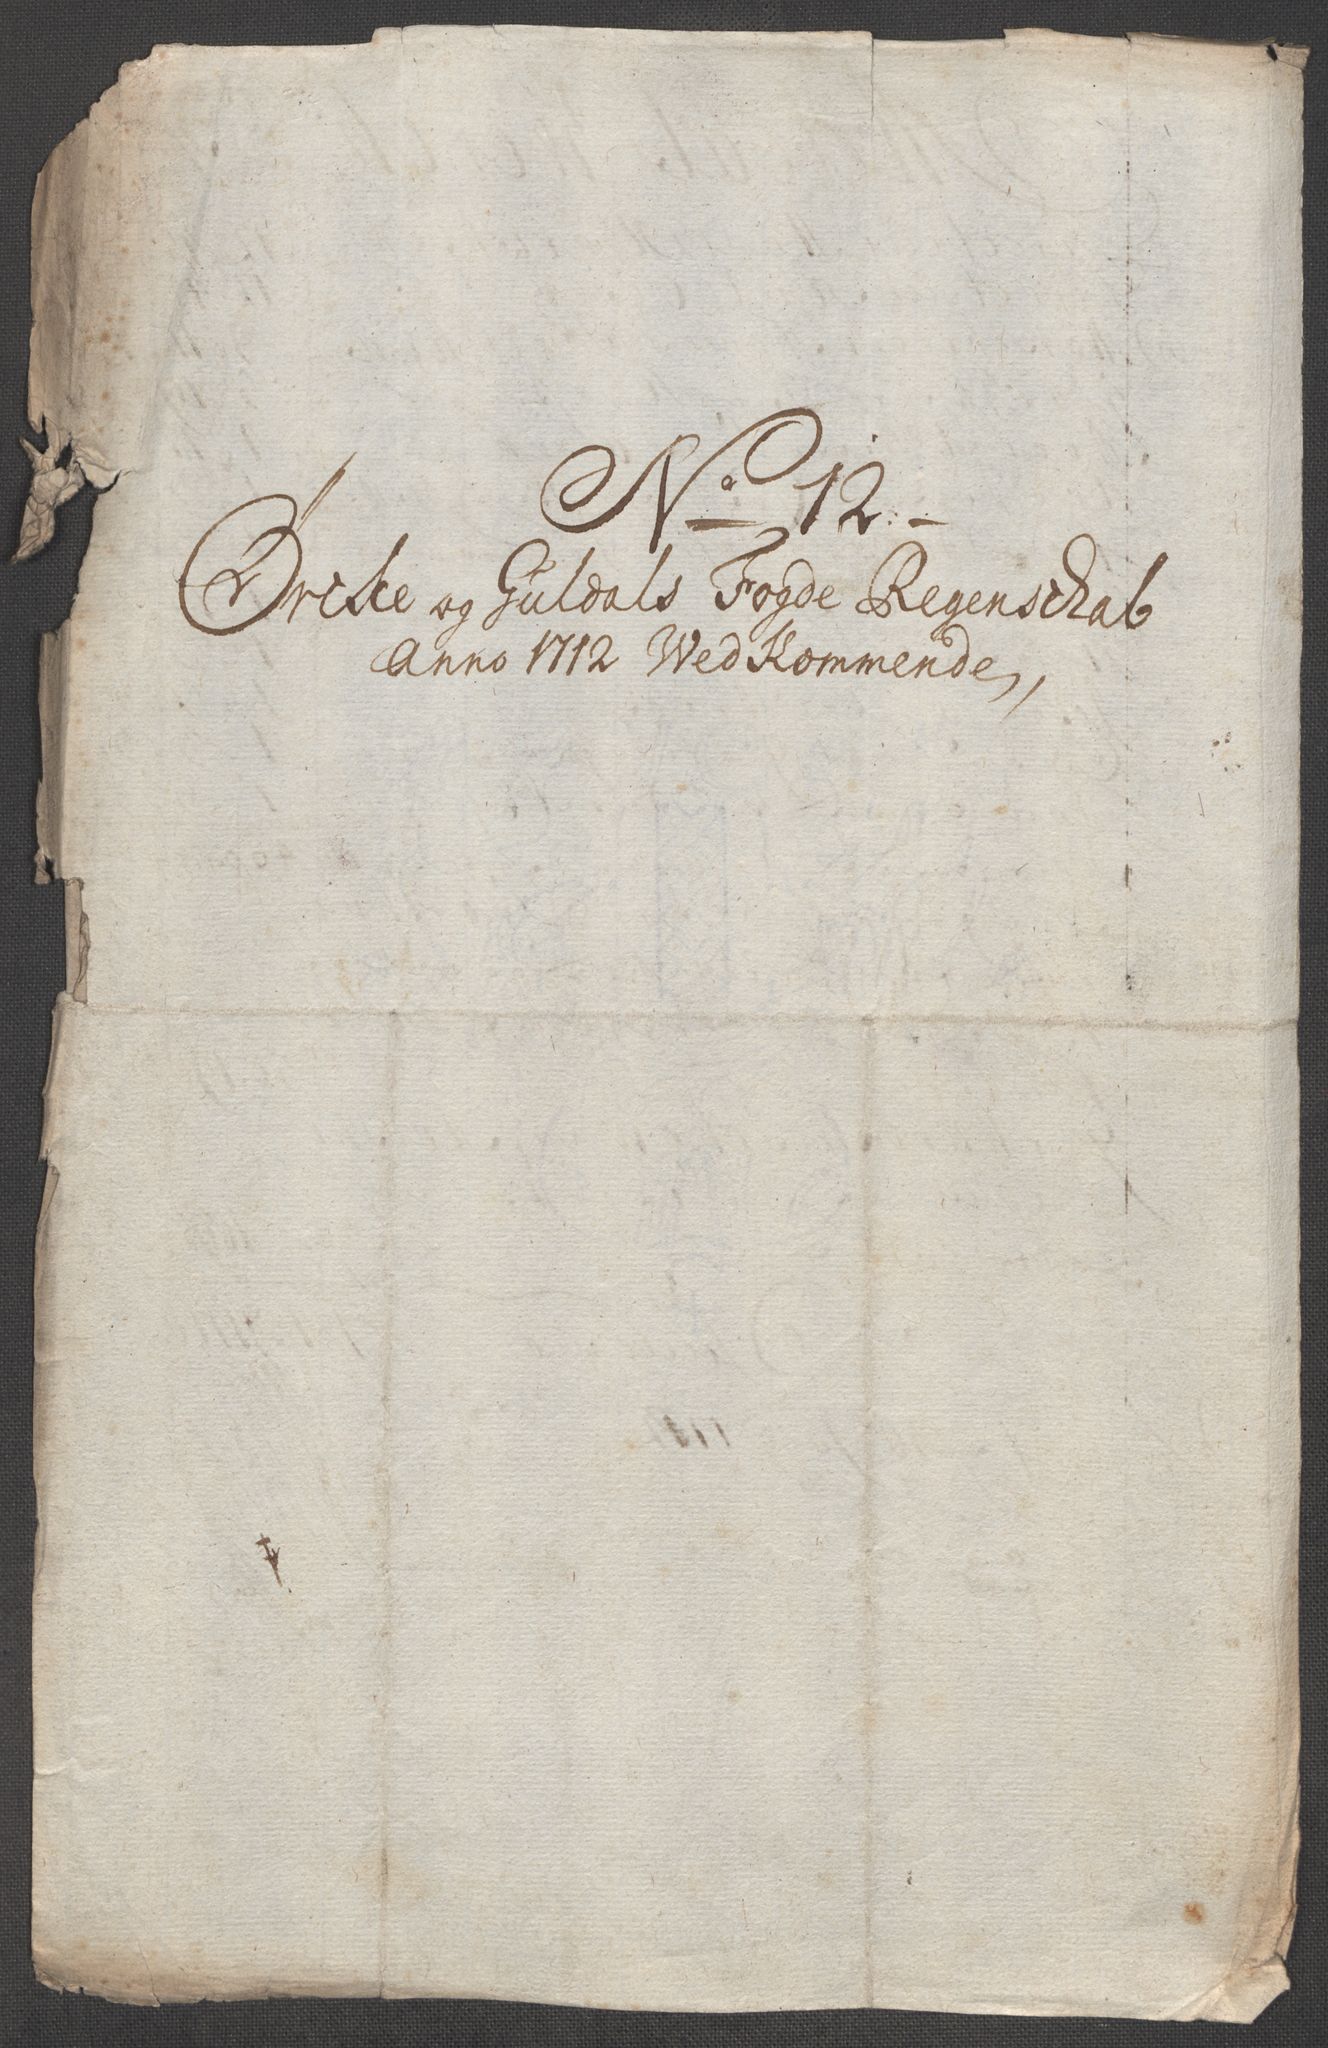 No 12.
Ørcke og Guldals Fogde Regenschab
Anno 1712 Wed Kommende,